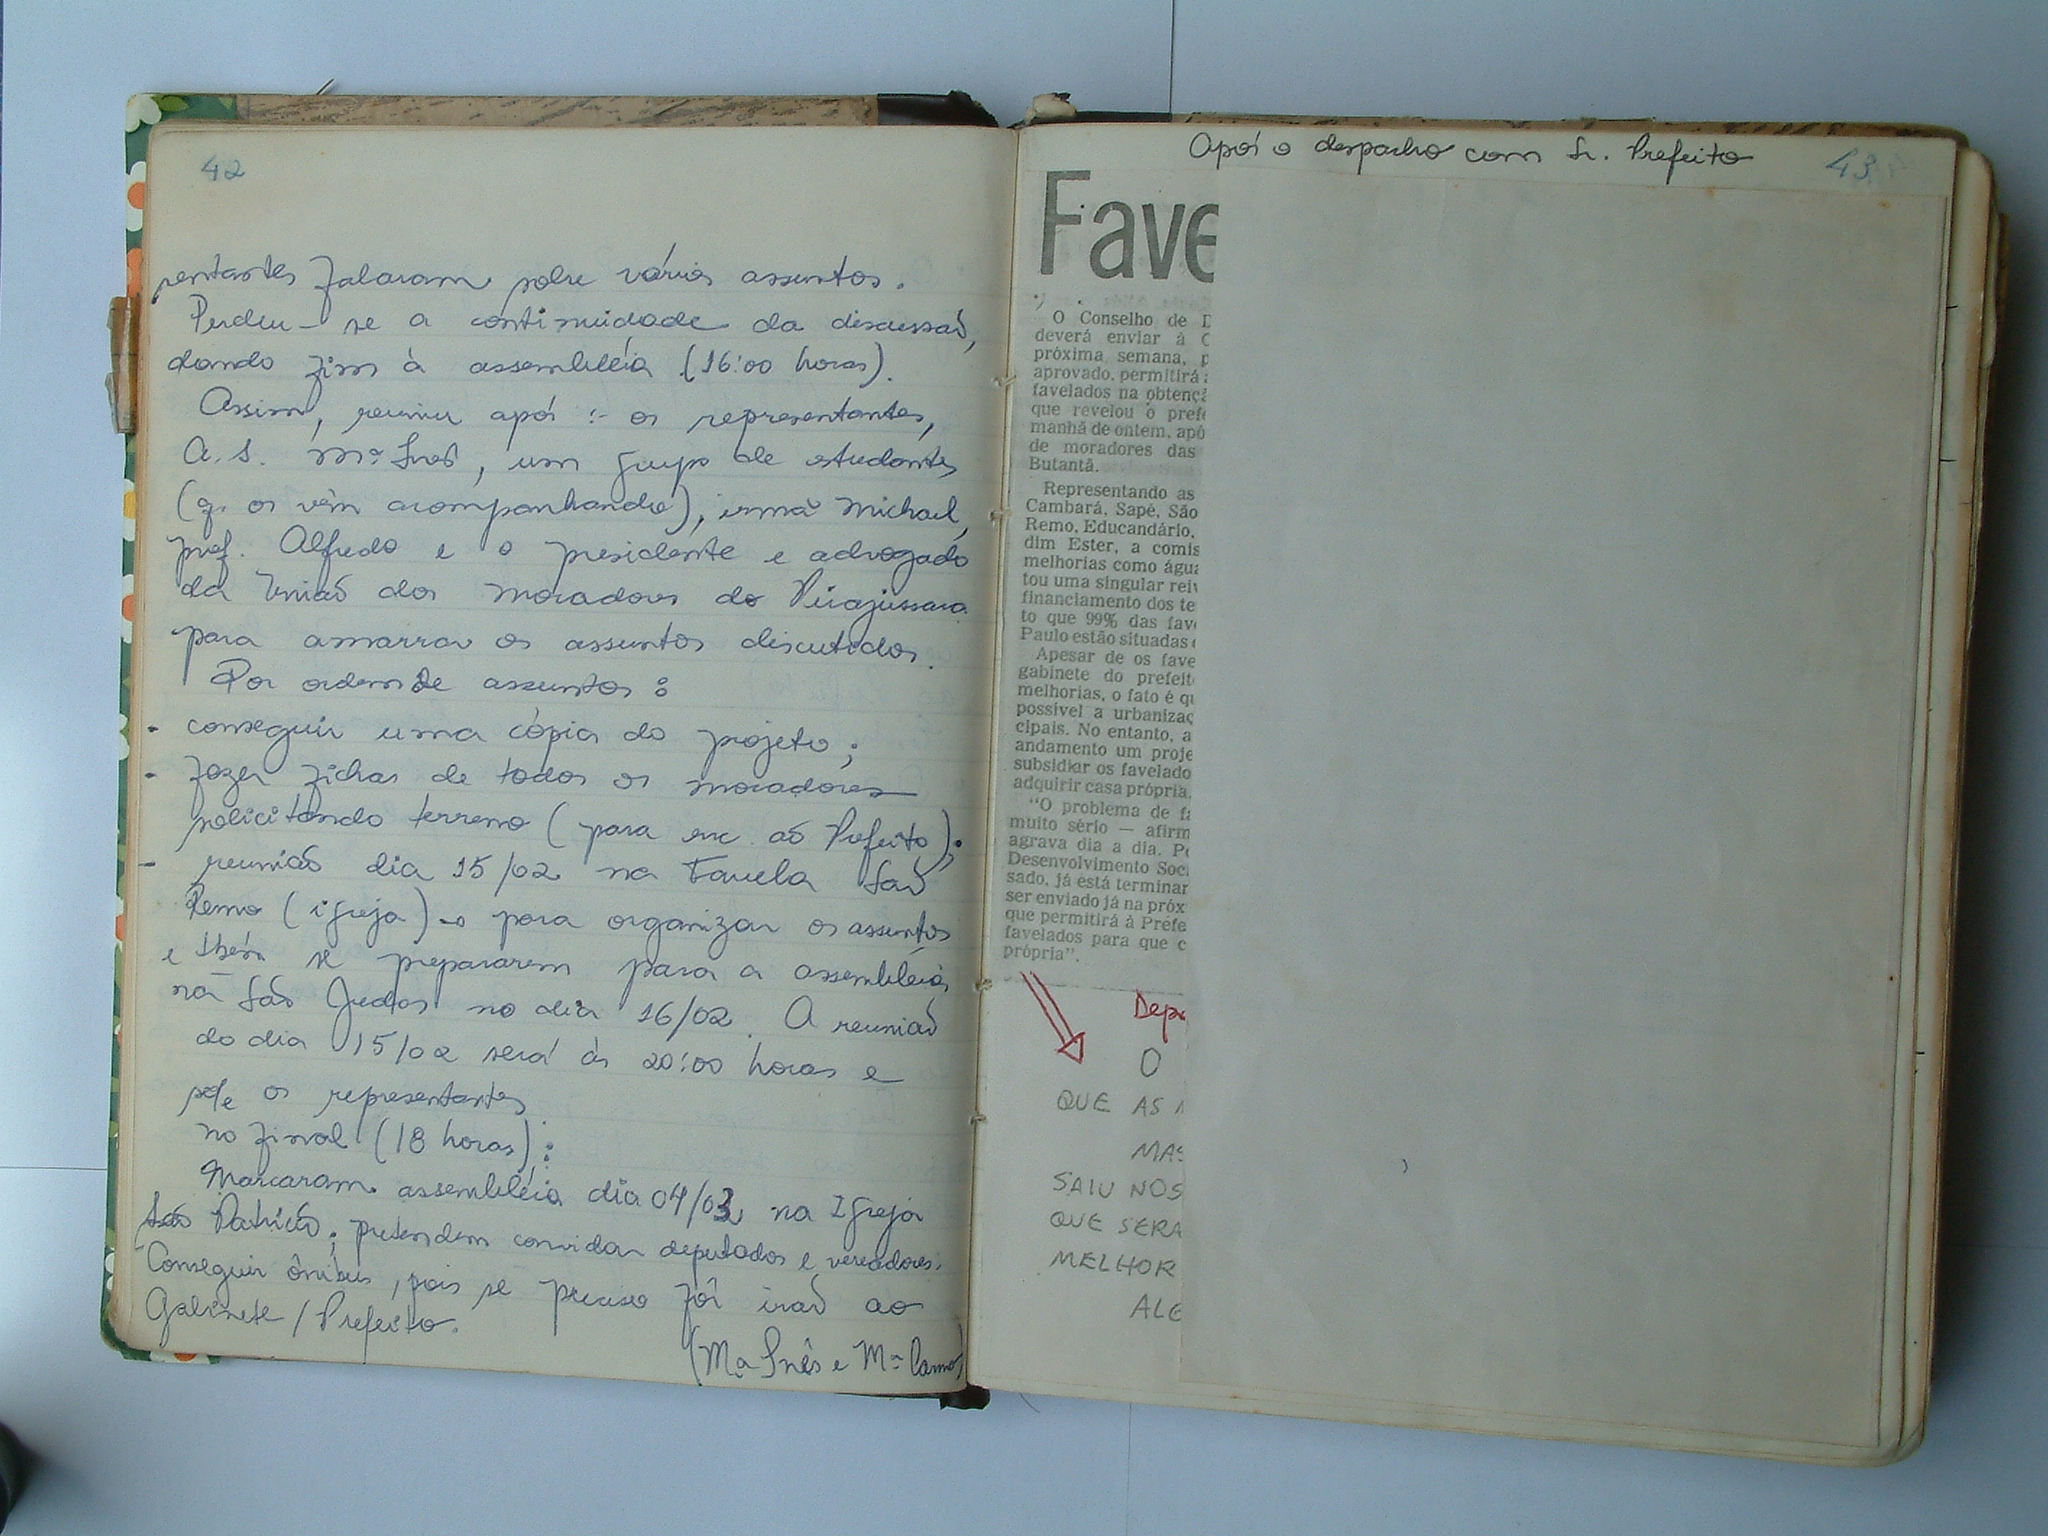 42
sentantes falaram sobre vários assuntos.
Perdeu-se a continuidade da discussão,
dando fim à assembléia (16:00 horas).
Assim, reuniu após :- os representantes,
A.S. Mª Inês, um grupo de estudantes
(q. os vêm acompanhando), irmã Michael,
prof. Alfredo e o presidente e advogado
da União dos Moradores do Pirajussara
para amarrar os assuntos discutidos.
Por ordem de assuntos:
- conseguir uma cópia do projeto;
- fazer fichas de todos os moradores
solicitando terreno (para enc. ao Prefeito);
- reunião dia 15/02 na Favela São
Remo (igreja) → para organizar os assuntos
e tbém se prepararem para a assembléia
na São Judas no dia 16/02. A reunião
do dia 15/02 será às 20:00 horas e
só/e os representantes
no final (18 horas):
Marcaram assembléia dia 04/03 na Igreja
São Patrício; pretendem convidar deputados e vereadores.
Conseguir ônibus, pois se preciso fôr irão ao
Gabinete/Prefeito.
(Mª Inês e Mª Carmo)
Após o despacho com Sr. Prefeito
43
Fave
O Conselho de D
deverá enviar à C
próxima semana, p
aprovado, permitirá a
favelados na obtençã
que revelou o prefe
manhã de ontem, apó
de moradores das
Butantã.
Representando as
Cambará, Sapé, São
Remo, Educandário,
dim Ester, a comis
melhorias como água
tou uma singular reiv
financiamento dos te
to que 99% das fave
Paulo estão situadas e
Apesar de os fave
gabinete do prefeit
melhorias, o fato é qu
possível a urbanizaç
cipais. No entanto, a
andamento um proje
subsidiar os favelado
adquirir casa própria.
"O problema de fa
muito sério — afirm
agrava dia a dia. Po
Desenvolvimento Soci
sado, já está terminan
ser enviado já na próx
que permitirá à Prefe
favelados para que c
própria".
Depo
O
QUE AS
MAS
SAIU NOS
QUE SERA
MELHOR
ALE